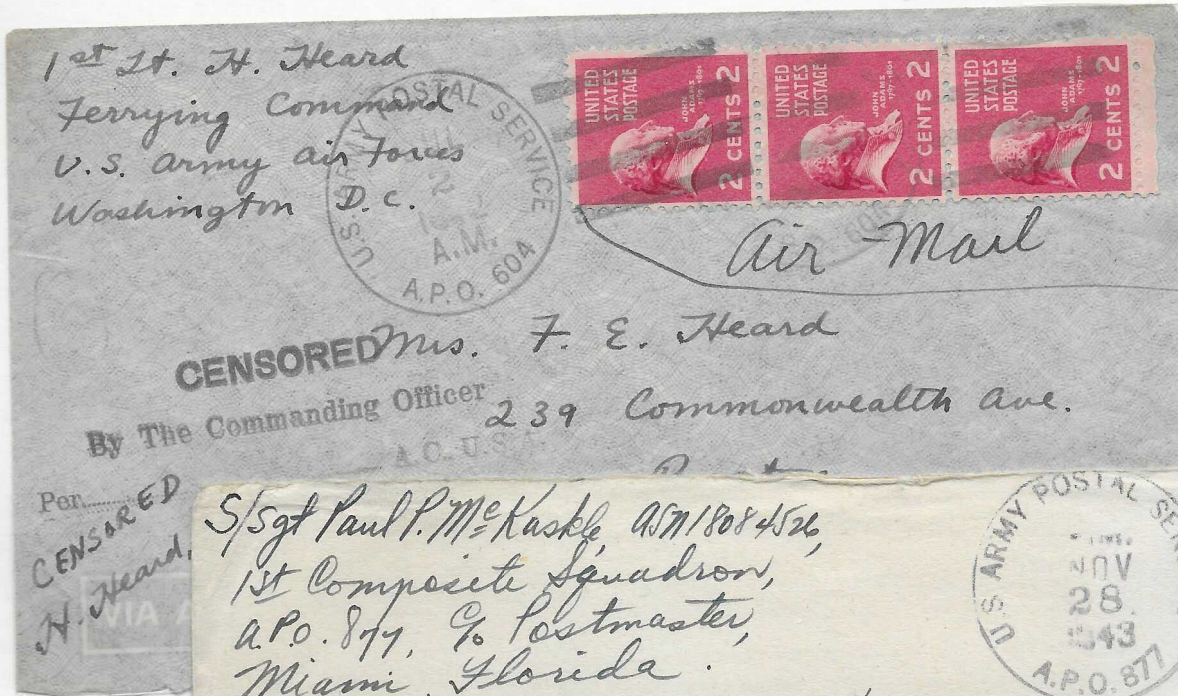 1st Lt. H. Heard
Ferrying Command
U.S. Army Air Forces
Washington D.C.
U.S. ARMY POSTAL SERVICE
2
A.M.
A.P.O. 604
UNITED STATES POSTAGE
JOHN ADAMS
1797-1801
2 CENTS 2
UNITED STATES POSTAGE
JOHN ADAMS
1797-1801
2 CENTS 2
UNITED STATES POSTAGE
JOHN ADAMS
1797-1801
2 CENTS 2
Air-Mail
Mrs. F. E. Heard
239 Commonwealth Ave.
CENSORED
By The Commanding Officer
A C. U.S.A.
Per
CENSORED
H. Heard,
VIA A
S/Sgt Paul P. McKaskle, ASN 18084526,
1st Composite Squadron,
A.P.O. 877, c/o Postmaster,
Miami, Florida.
U.S. ARMY POSTAL SER
NOV
28
1943
A.P.O. 877